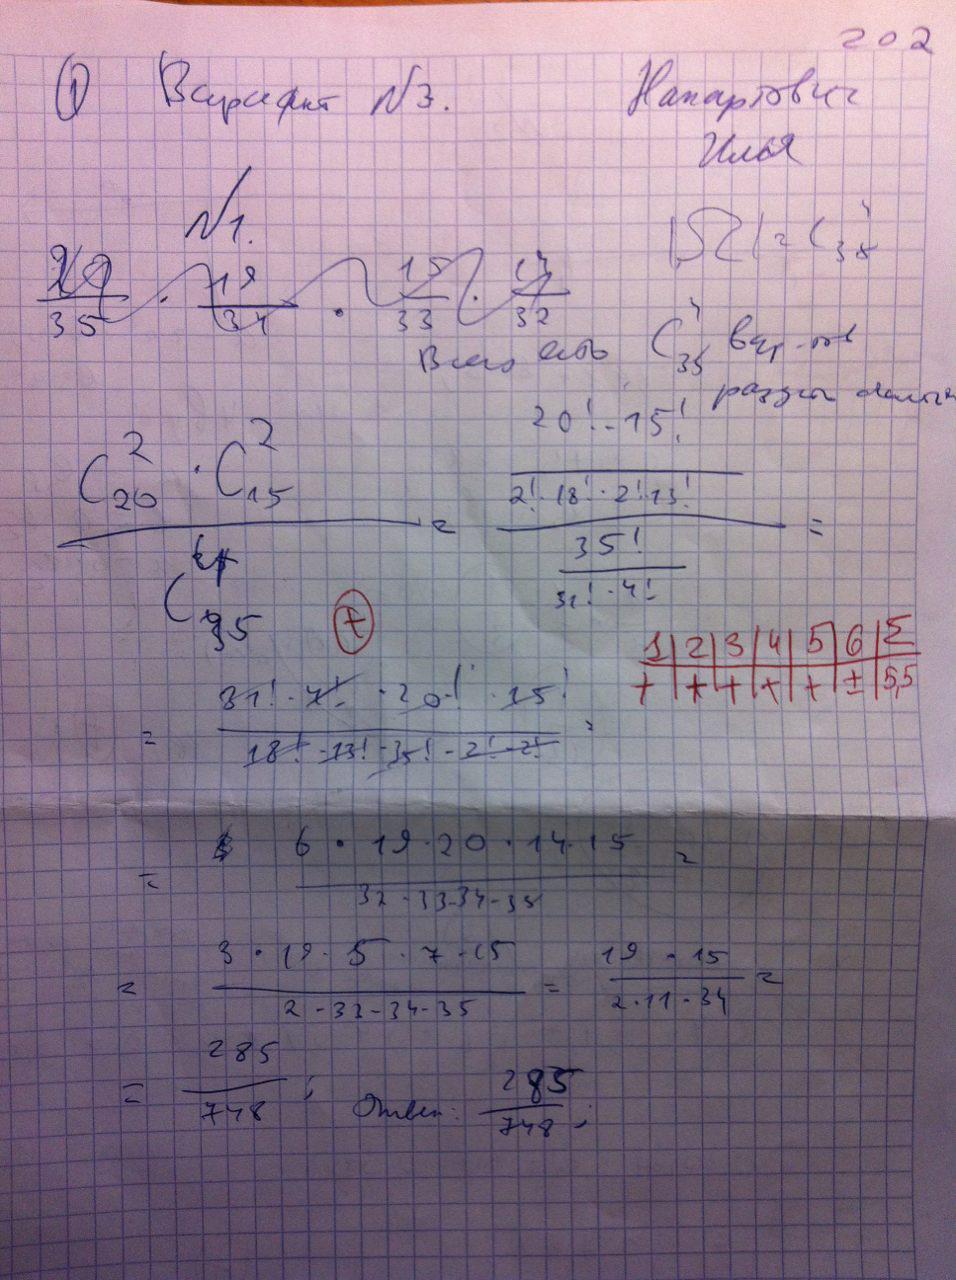 202
① Вариант №3. Напартович
Илья
№1.
|Ω| = C_{35}^{4}
20/35 · 19/34 · 15/33 · 14/32
Всего есть C_{35}^{4} вар-тов
C_{20}^{2} · C_{15}^{2} / C_{35}^{4} = (20! · 15! / 2! · 18! · 2! 13!) / (35! / 31! · 4!) =
+
1 | 2 | 3 | 4 | 5 | 6 | Σ
+ | + | + | + | + | ± | 5,5
= 31! · 4! · 20! · 15! / 18! · 13! · 35! · 2! · 2! =
= 6 · 19 · 20 · 14 · 15 / 32 · 33 · 34 · 35 =
= 3 · 19 · 5 · 7 · 15 / 2 · 33 · 34 · 35 = 19 · 15 / 2 · 11 · 34 =
= 285 / 748 ; Ответ: 285 / 748 ;